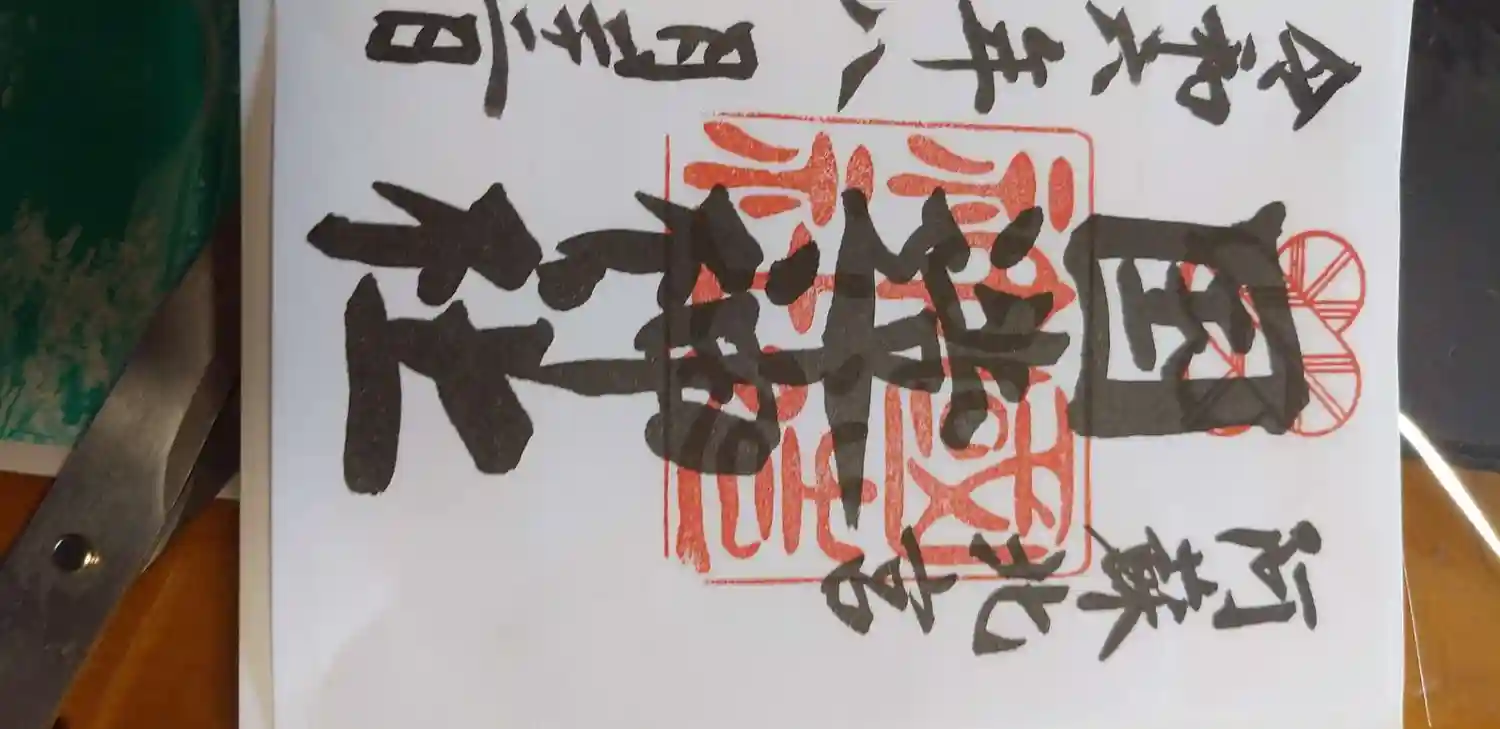 阿蘇北宮
国造神社
令和六年八月十二日